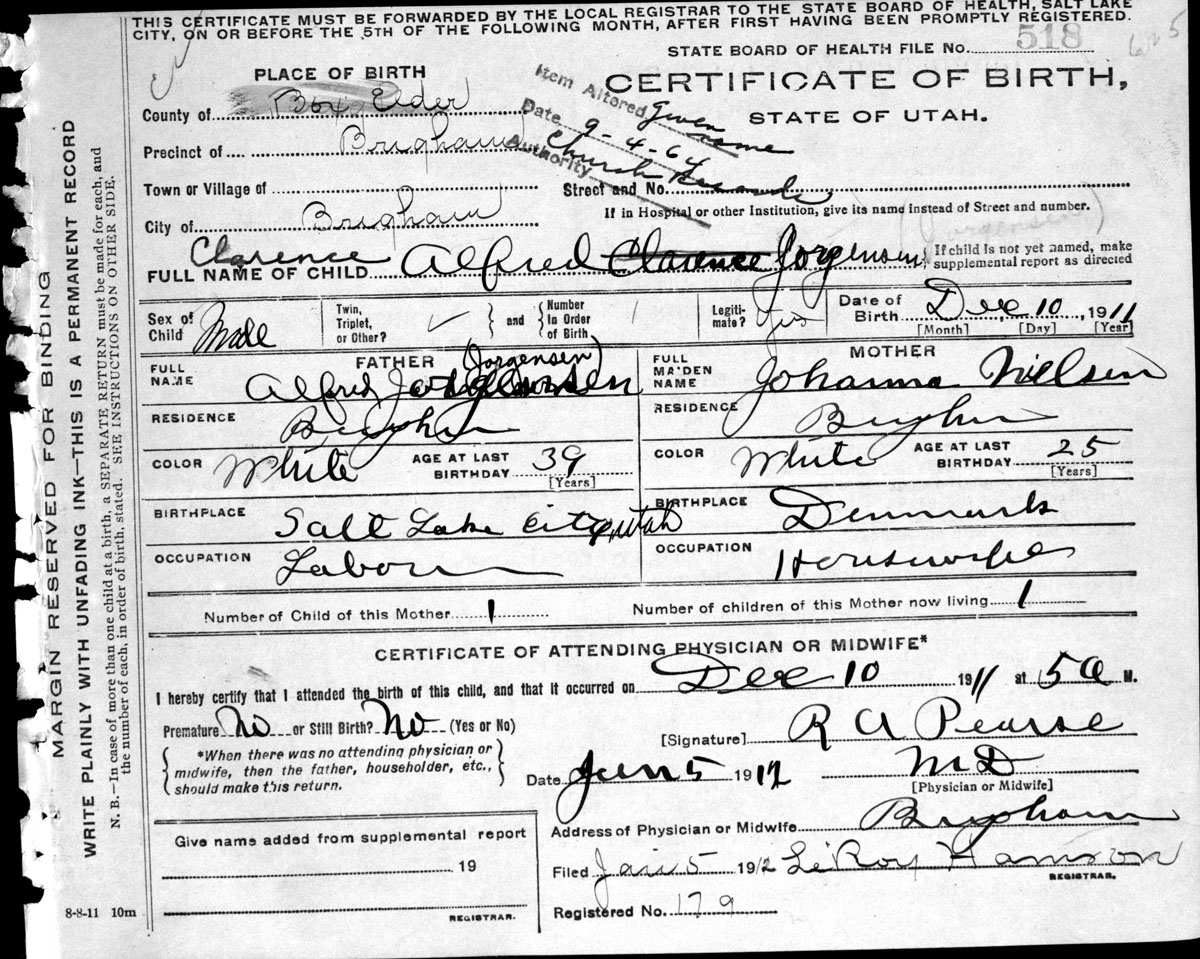 THIS CERTIFICATE MUST BE FORWARDED BY THE LOCAL REGISTRAR TO THE STATE BOARD OF HEALTH, SALT LAKE
CITY, ON OR BEFORE THE 5TH OF THE FOLLOWING MONTH, AFTER FIRST HAVING BEEN PROMPTLY REGISTERED.
STATE BOARD OF HEALTH FILE No. 518
625
PLACE OF BIRTH
CERTIFICATE OF BIRTH,
STATE OF UTAH.
Item Altored Given name
Date 9-4-64
Authority Church Records
County of Box Elder
Precinct of Brigham
Town or Village of
Street and No.
City of Brigham
If in Hospital or other Institution, give its name instead of Street and number.
(Jorgensen)
FULL NAME OF CHILD Clarence Alfred Clarence Jorgensen
If child is not yet named, make
supplemental report as directed
Sex of Child Male
Twin, Triplet, or Other? ✓ and Number In Order of Birth 1
Legitimate? Yes
Date of Birth Dec 10, 1911
[Month] [Day] [Year]
FATHER
FULL NAME Alfred Jorgensen (Jorgensen)
RESIDENCE Brigham
COLOR White AGE AT LAST BIRTHDAY 39 [Years]
BIRTHPLACE Salt Lake City Utah
OCCUPATION Labor
MOTHER
FULL MAIDEN NAME Johanna Nielsen
RESIDENCE Brigham
COLOR White AGE AT LAST BIRTHDAY 25 [Years]
BIRTHPLACE Denmark
OCCUPATION Housewife
Number of Child of this Mother 1 Number of children of this Mother now living 1
CERTIFICATE OF ATTENDING PHYSICIAN OR MIDWIFE*
I hereby certify that I attended the birth of this child, and that it occurred on Dec 10 1911 at 5 a M.
Premature No or Still Birth? No (Yes or No)
[Signature] R A Pearse
*When there was no attending physician or
midwife, then the father, householder, etc.,
should make this return.
Date Jan 5 1912 MD
[Physician or Midwife]
Give name added from supplemental report
19
REGISTRAR.
Address of Physician or Midwife Brigham
Filed Jan 5 1912 LeRoy Hanson
REGISTRAR.
Registered No. 179
8-8-11 10m
MARGIN RESERVED FOR BINDING
WRITE PLAINLY WITH UNFADING INK—THIS IS A PERMANENT RECORD
N. B.—In case of more than one child at a birth, a SEPARATE RETURN must be made for each, and
the number of each, in order of birth, stated. SEE INSTRUCTIONS ON OTHER SIDE.